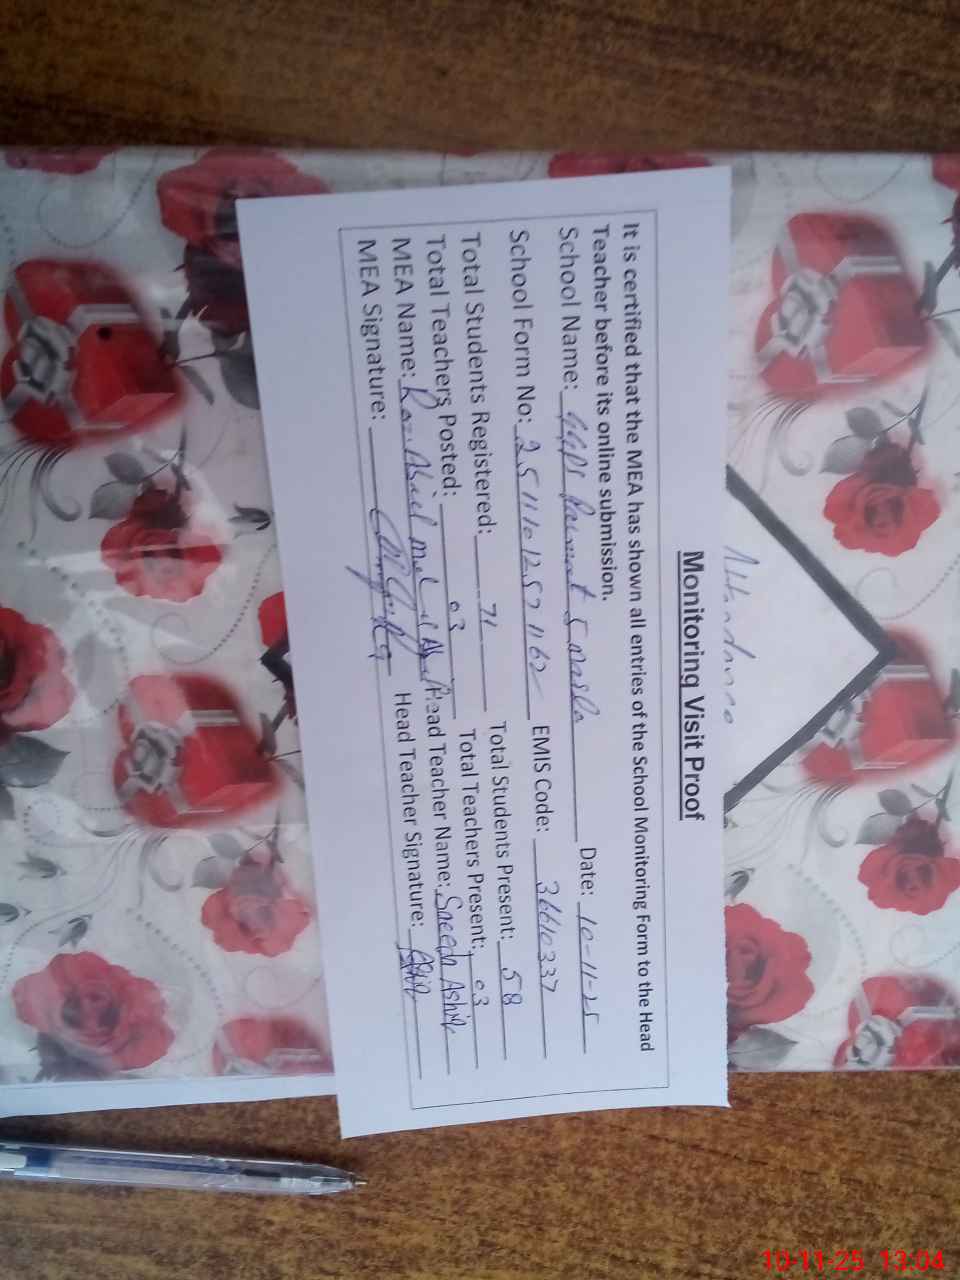 Attendance
Monitoring Visit Proof
It is certified that the MEA has shown all entries of the School Monitoring Form to the Head
Teacher before its online submission.
School Name: GGPS Date: 10-11-25
School Form No: EMIS Code: 36610337
Total Students Registered: 71 Total Students Present: 58
Total Teachers Posted: 03 Total Teachers Present: 03
MEA Name: Head Teacher Name: Saeeda Ashiq
MEA Signature: Head Teacher Signature:
10-11-25 13:04